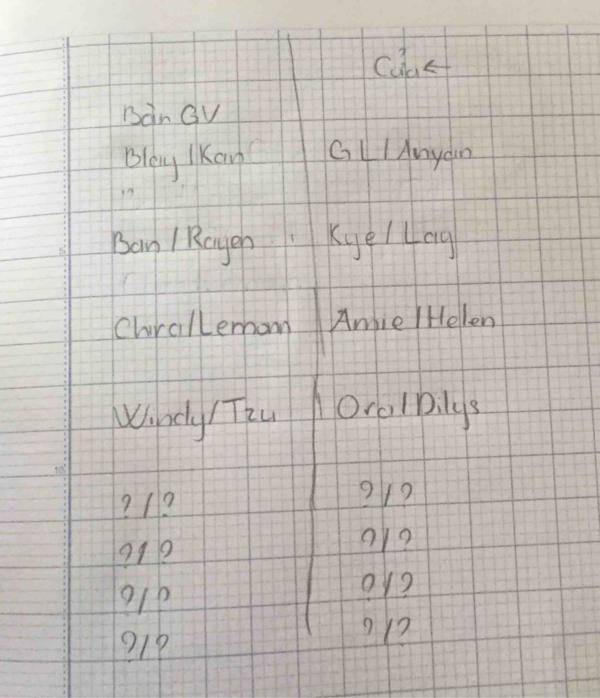 Cửa←
Bàn GV
Blay/Kan GL/Anyan
"
Ban/Rayen Kye/Lay
Chira/Lemom Annie/Helen
Windy/Tzu Ora/Dilys
?/? ?/?
?/? ?/?
?/? ?/?
?/? ?/?